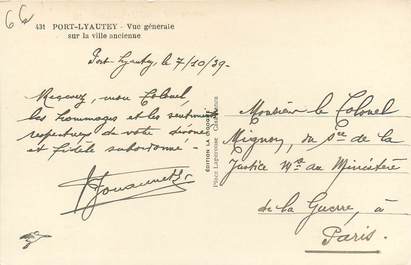 66
431 PORT-LYAUTEY - Vue générale
sur la ville ancienne
Port Lyautey, le 7/10/39.
Recevez, mon Colonel,
les hommages et les sentiments
respectueux de votre dévoué
et fidèle subordonné.
EDITION LA CIGOGNE
Place Lapérouse Casablanca
Monsieur le Colonel
Mignon, du Sce de la
Justice Mre au Ministère
de la Guerre, à
Paris.